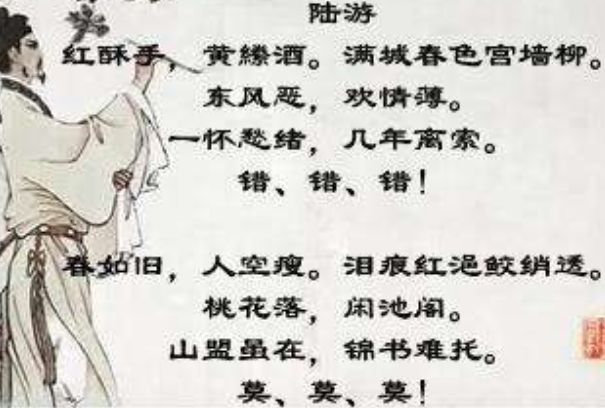 陆游
红酥手，黄縢酒。满城春色宫墙柳。
东风恶，欢情薄。
一怀愁绪，几年离索。
错、错、错！
春如旧，人空瘦。泪痕红浥鲛绡透。
桃花落，闲池阁。
山盟虽在，锦书难托。
莫、莫、莫！